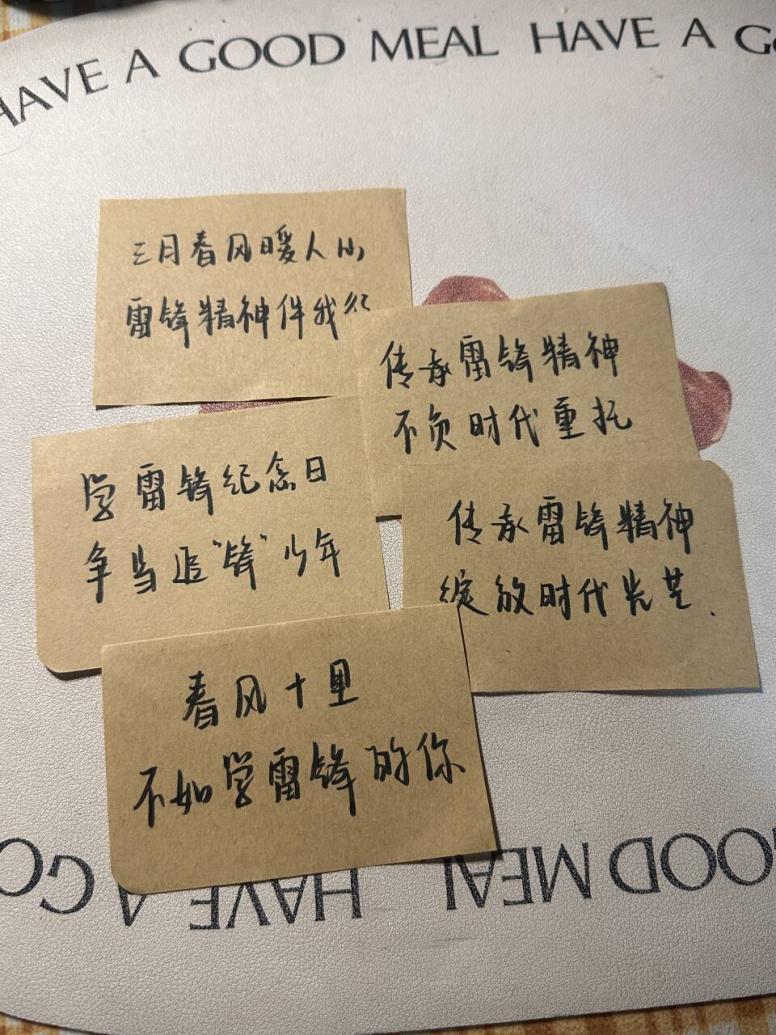 HAVE A GOOD MEAL HAVE A GO
三月春风暖人心
雷锋精神伴我行
传承雷锋精神
不负时代重托
学雷锋纪念日
争当追“锋”少年
传承雷锋精神
绽放时代光芒.
春风十里
不如学雷锋的你
GOOD MEAL HAVE A GO